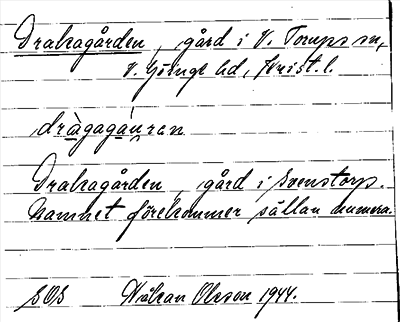 Drakagården, gård i V. Torups sn,
V. Göinge hd, Krist. l.
dràgagáu̯ren
Drakagården, gård i Svenstorp.
Namnet förekommer sällan numera.
SOS Håkan Olsson 1944.